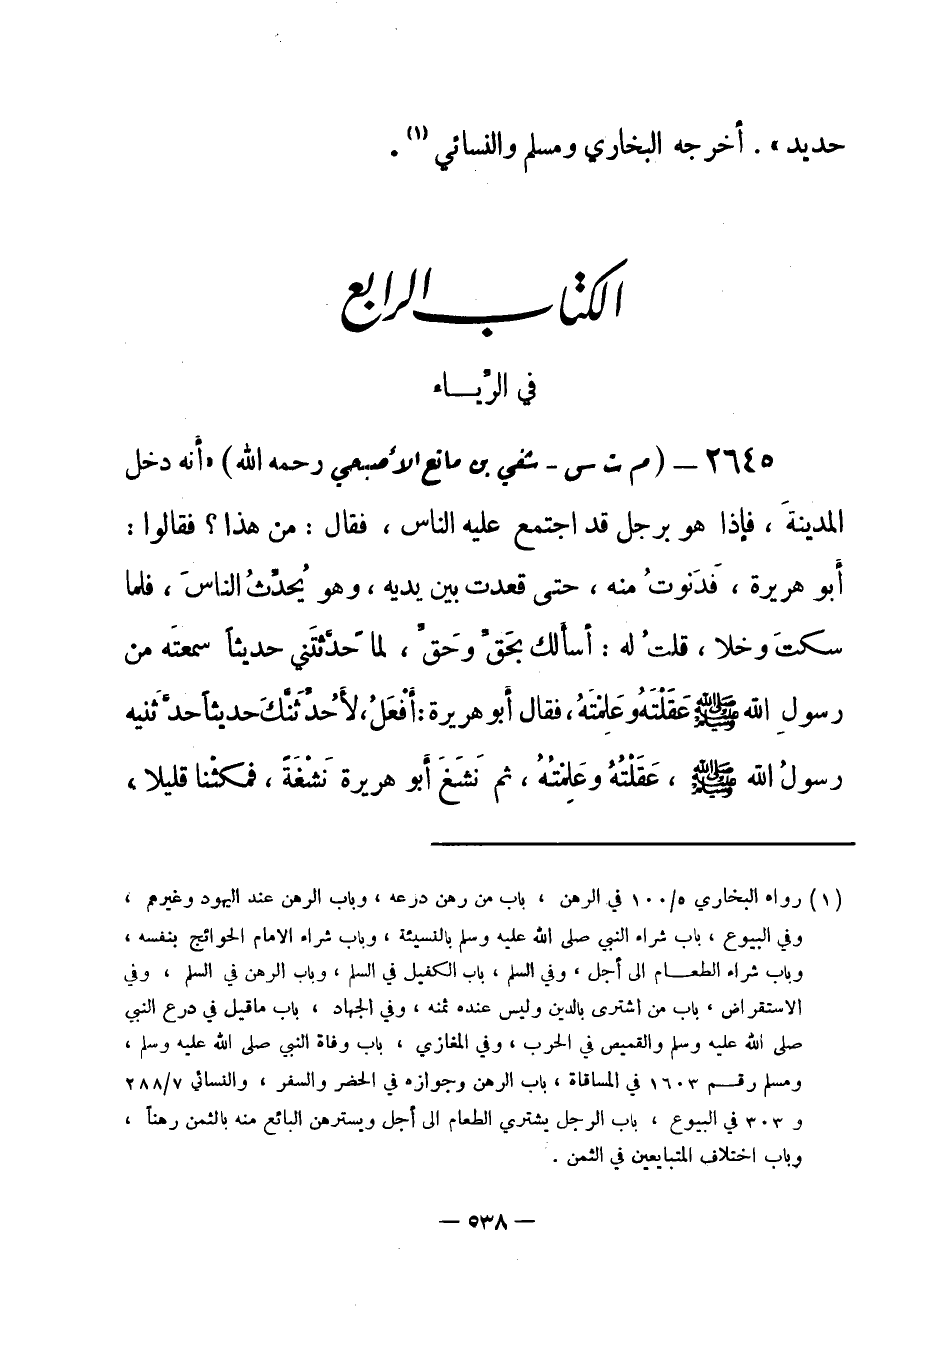 حديد » . أخرجه البخاري ومسلم والنسائي (١) .
الكتاب الرابع
في الرِّيـــاء
٢٦٤٥ – (م ت س - شفي بن مانع الأصبحي رحمه الله) «أنه دخل
المدينةَ ، فإذا هو برجل قد اجتمع عليه الناس ، فقال : من هذا ؟ فقالوا :
أبو هريرة ، فَدَنوتُ منه ، حتى قعدت بين يديه ، وهو يُحدِّثُ الناسَ ، فلما
سكتَ وخلا ، قلتُ له : أسألك بحَقٍّ وحَقٍّ ، لما حَدَّثتَني حديثاً سمعتَه من
رسولِ الله ﷺ عَقَلْتَهُ وعَلِمْتَهُ ، فقال أبو هريرة : أفْعَلُ ، لأُحدِّثنَّكَ حديثاً حدَّثنيه
رسولُ الله ﷺ ، عَقَلْتُهُ وعَلِمْتُهُ ، ثم نَشَغَ أبو هريرة نَشْغَةً ، فمكثْنا قليلا ،
(١) رواه البخاري ٥/١٠٠ في الرهن ، باب من رهن درعه ، وباب الرهن عند اليهود وغيرهم ،
وفي البيوع ، باب شراء النبي صلى الله عليه وسلم بالنسيئة ، وباب شراء الامام الحوائج بنفسه ،
وباب شراء الطعـــام الى أجل ، وفي السلم ، باب الكفيل في السلم ، وباب الرهن في السلم ، وفي
الاستقراض ، باب من اشترى بالدين وليس عنده ثمنه ، وفي الجهاد ، باب ماقيل في درع النبي
صلى الله عليه وسلم والقميص في الحرب ، وفي المغازي ، باب وفاة النبي صلى الله عليه وسلم ،
ومسلم رقــم ١٦٠٣ في المساقاة ، باب الرهن وجوازه في الحضر والسفر ، والنسائي ٢٨٨/٧
و ٣٠٣ في البيوع ، باب الرجل يشتري الطعام الى أجل ويسترهن البائع منه بالثمن رهناً ،
وباب اختلاف المتبايعين في الثمن .
– ٥٣٨ –